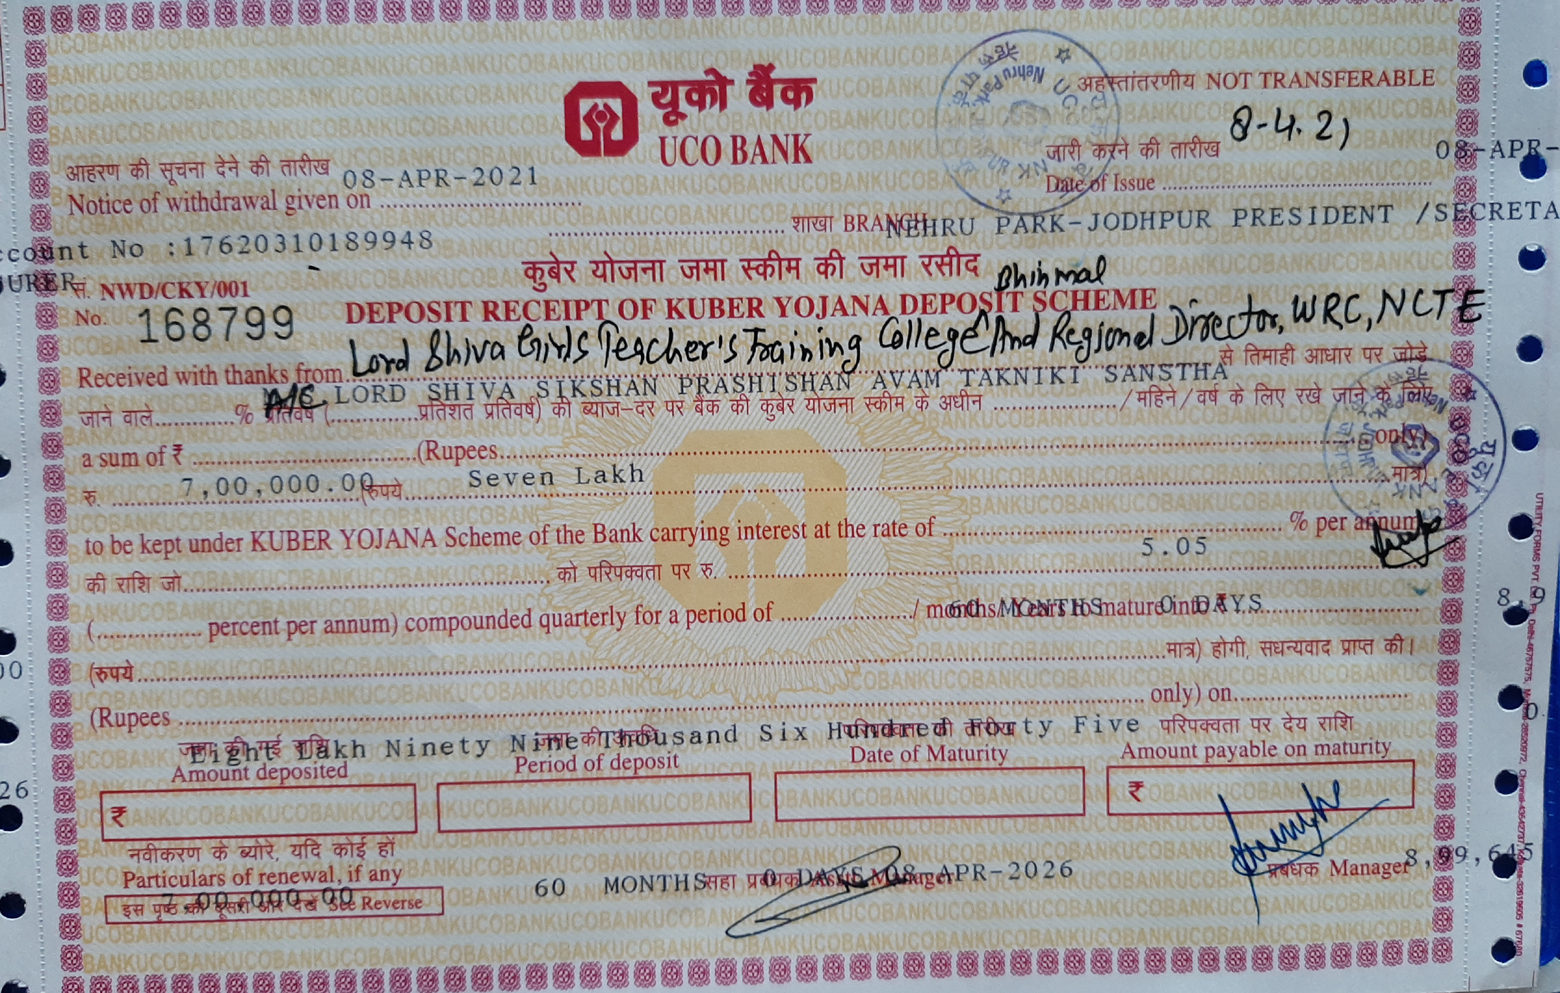 यूको बैंक
UCO BANK
अहस्तांतरणीय NOT TRANSFERABLE
8-4.21
जारी करने की तारीख
08-APR-
Date of Issue
आहरण की सूचना देने की तारीख
08-APR-2021
Notice of withdrawal given on
शाखा BRANCH NEHRU PARK-JODHPUR PRESIDENT /SECRETA
ccount No :17620310189948
URER
कुबेर योजना जमा स्कीम की जमा रसीद
सं. NWD/CKY/001
Bhinmal
No. 168799
DEPOSIT RECEIPT OF KUBER YOJANA DEPOSIT SCHEME
Lord Shiva Girls Teacher's Training College And Regional Director, WRC, NCTE
Received with thanks from
से तिमाही आधार पर जोड़े
A/C LORD SHIVA SIKSHAN PRASHISHAN AVAM TAKNIKI SANSTHA
जाने वाले % प्रतिवर्ष ( प्रतिशत प्रतिवर्ष) की ब्याज-दर पर बैंक की कुबेर योजना स्कीम के अधीन / महिने / वर्ष के लिए रखे जाने के लिए
a sum of ₹ (Rupees only)
रु. 7,00,000.00 रुपये Seven Lakh मात्र)
to be kept under KUBER YOJANA Scheme of the Bank carrying interest at the rate of % per annum
5.05
की राशि जो को परिपक्वता पर रु.
8,9
( percent per annum) compounded quarterly for a period of / months/Years to mature into ₹
60 MONTHS 0 DAYS
(रुपये मात्र) होगी, सधन्यवाद प्राप्त की।
00
(Rupees only) on
0
Eight Lakh Ninety Nine Thousand Six Hundred Forty Five
परिपक्वता पर देय राशि
Amount deposited
Period of deposit
Date of Maturity
Amount payable on maturity
26
₹
₹
नवीकरण के ब्योरे, यदि कोई हों
Particulars of renewal, if any
60 MONTHS 0 DAYS 08-APR-2026
प्रबंधक Manager
8,99,645
7,00,000.00
इस पृष्ठ की दूसरी ओर देखें See Reverse